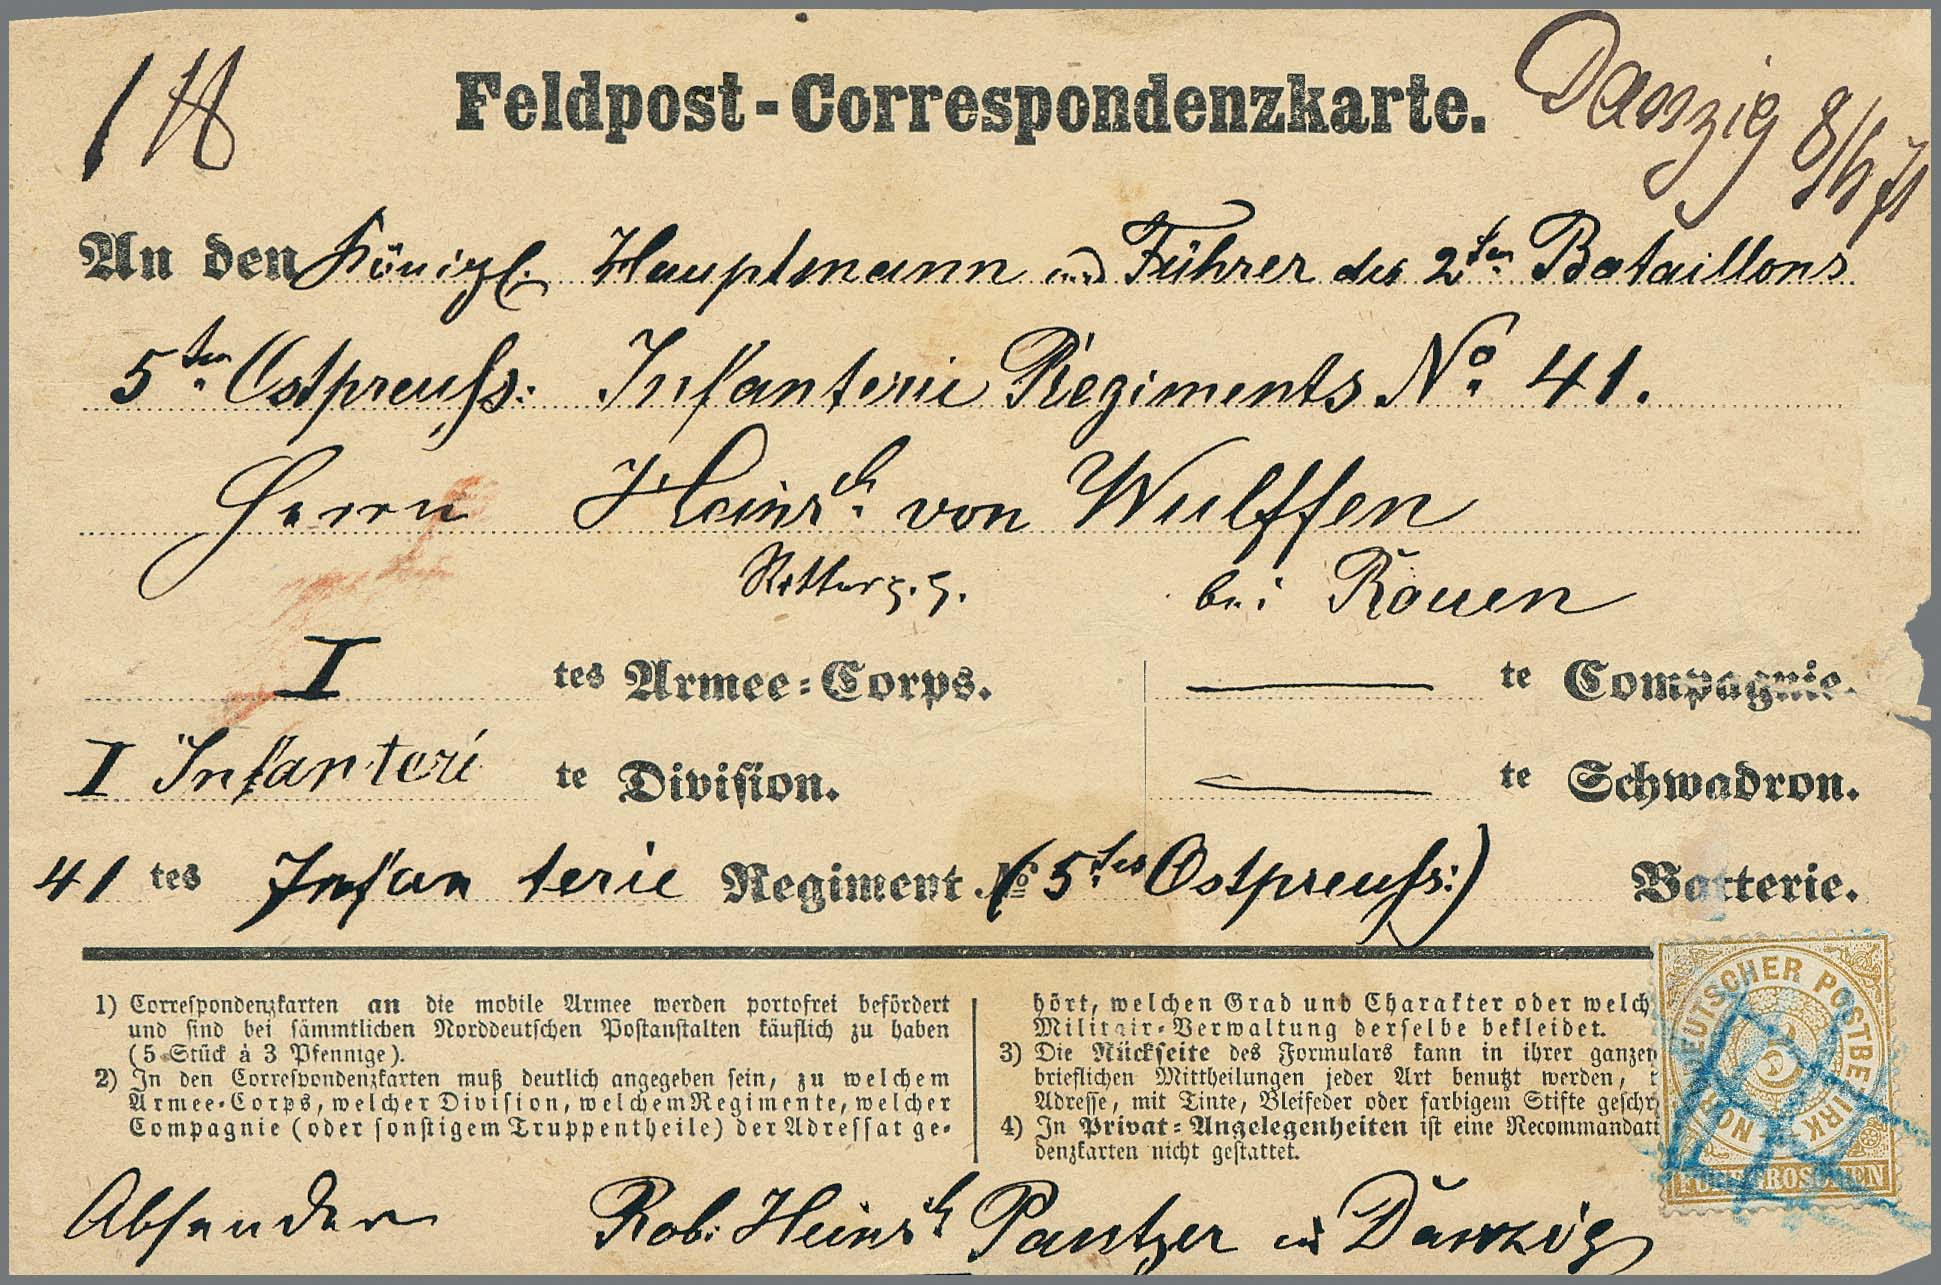 Feldpost-Correspondenzkarte.
Danzig 8/4 71
An den Königl. Hauptmann und Führer des 2ten Bataillons
5ten Ostpreuss: Infanterie Regiments No. 41.
Herrn Heinrch. von Wulffen
bei Rouen
I tes Armee-Corps. te Compagnie.
I Infanteri te Division. te Schwadron.
41 tes Infanterie Regiment № (5tes Ostpreuss:) Batterie.
1) Correspondenzkarten an die mobile Armee werden portofrei befördert
und sind bei sämmtlichen Norddeutschen Postanstalten käuflich zu haben
(5 Stück à 3 Pfennige).
2) In den Correspondenzkarten muß deutlich angegeben sein, zu welchem
Armee-Corps, welcher Division, welchem Regimente, welcher
Compagnie (oder sonstigem Truppentheile) der Adressat ge-
hört, welchen Grad und Charakter oder welch
Militair-Verwaltung derselbe bekleidet.
3) Die Rückseite des Formulars kann in ihrer ganzen
brieflichen Mittheilungen jeder Art benutzt werden,
Adresse, mit Tinte, Bleifeder oder farbigem Stifte geschr
4) In Privat-Angelegenheiten ist eine Recommandati
denzkarten nicht gestattet.
NORDDEUTSCHER POSTBEZIRK
5
FÜNF GROSCHEN
Absender Rob: Heinrch Pantzer in Danzig